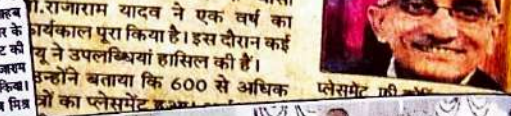 हब
र के
ट की
जाराम
किया।
मिश्र
.राजाराम यादव ने एक वर्ष का
कार्यकाल पूरा किया है। इस दौरान कई
यू ने उपलब्धियां हासिल की हैं।
उन्होंने बताया कि 600 से अधिक
त्रों का प्लेसमेंट
प्लेसमेंट